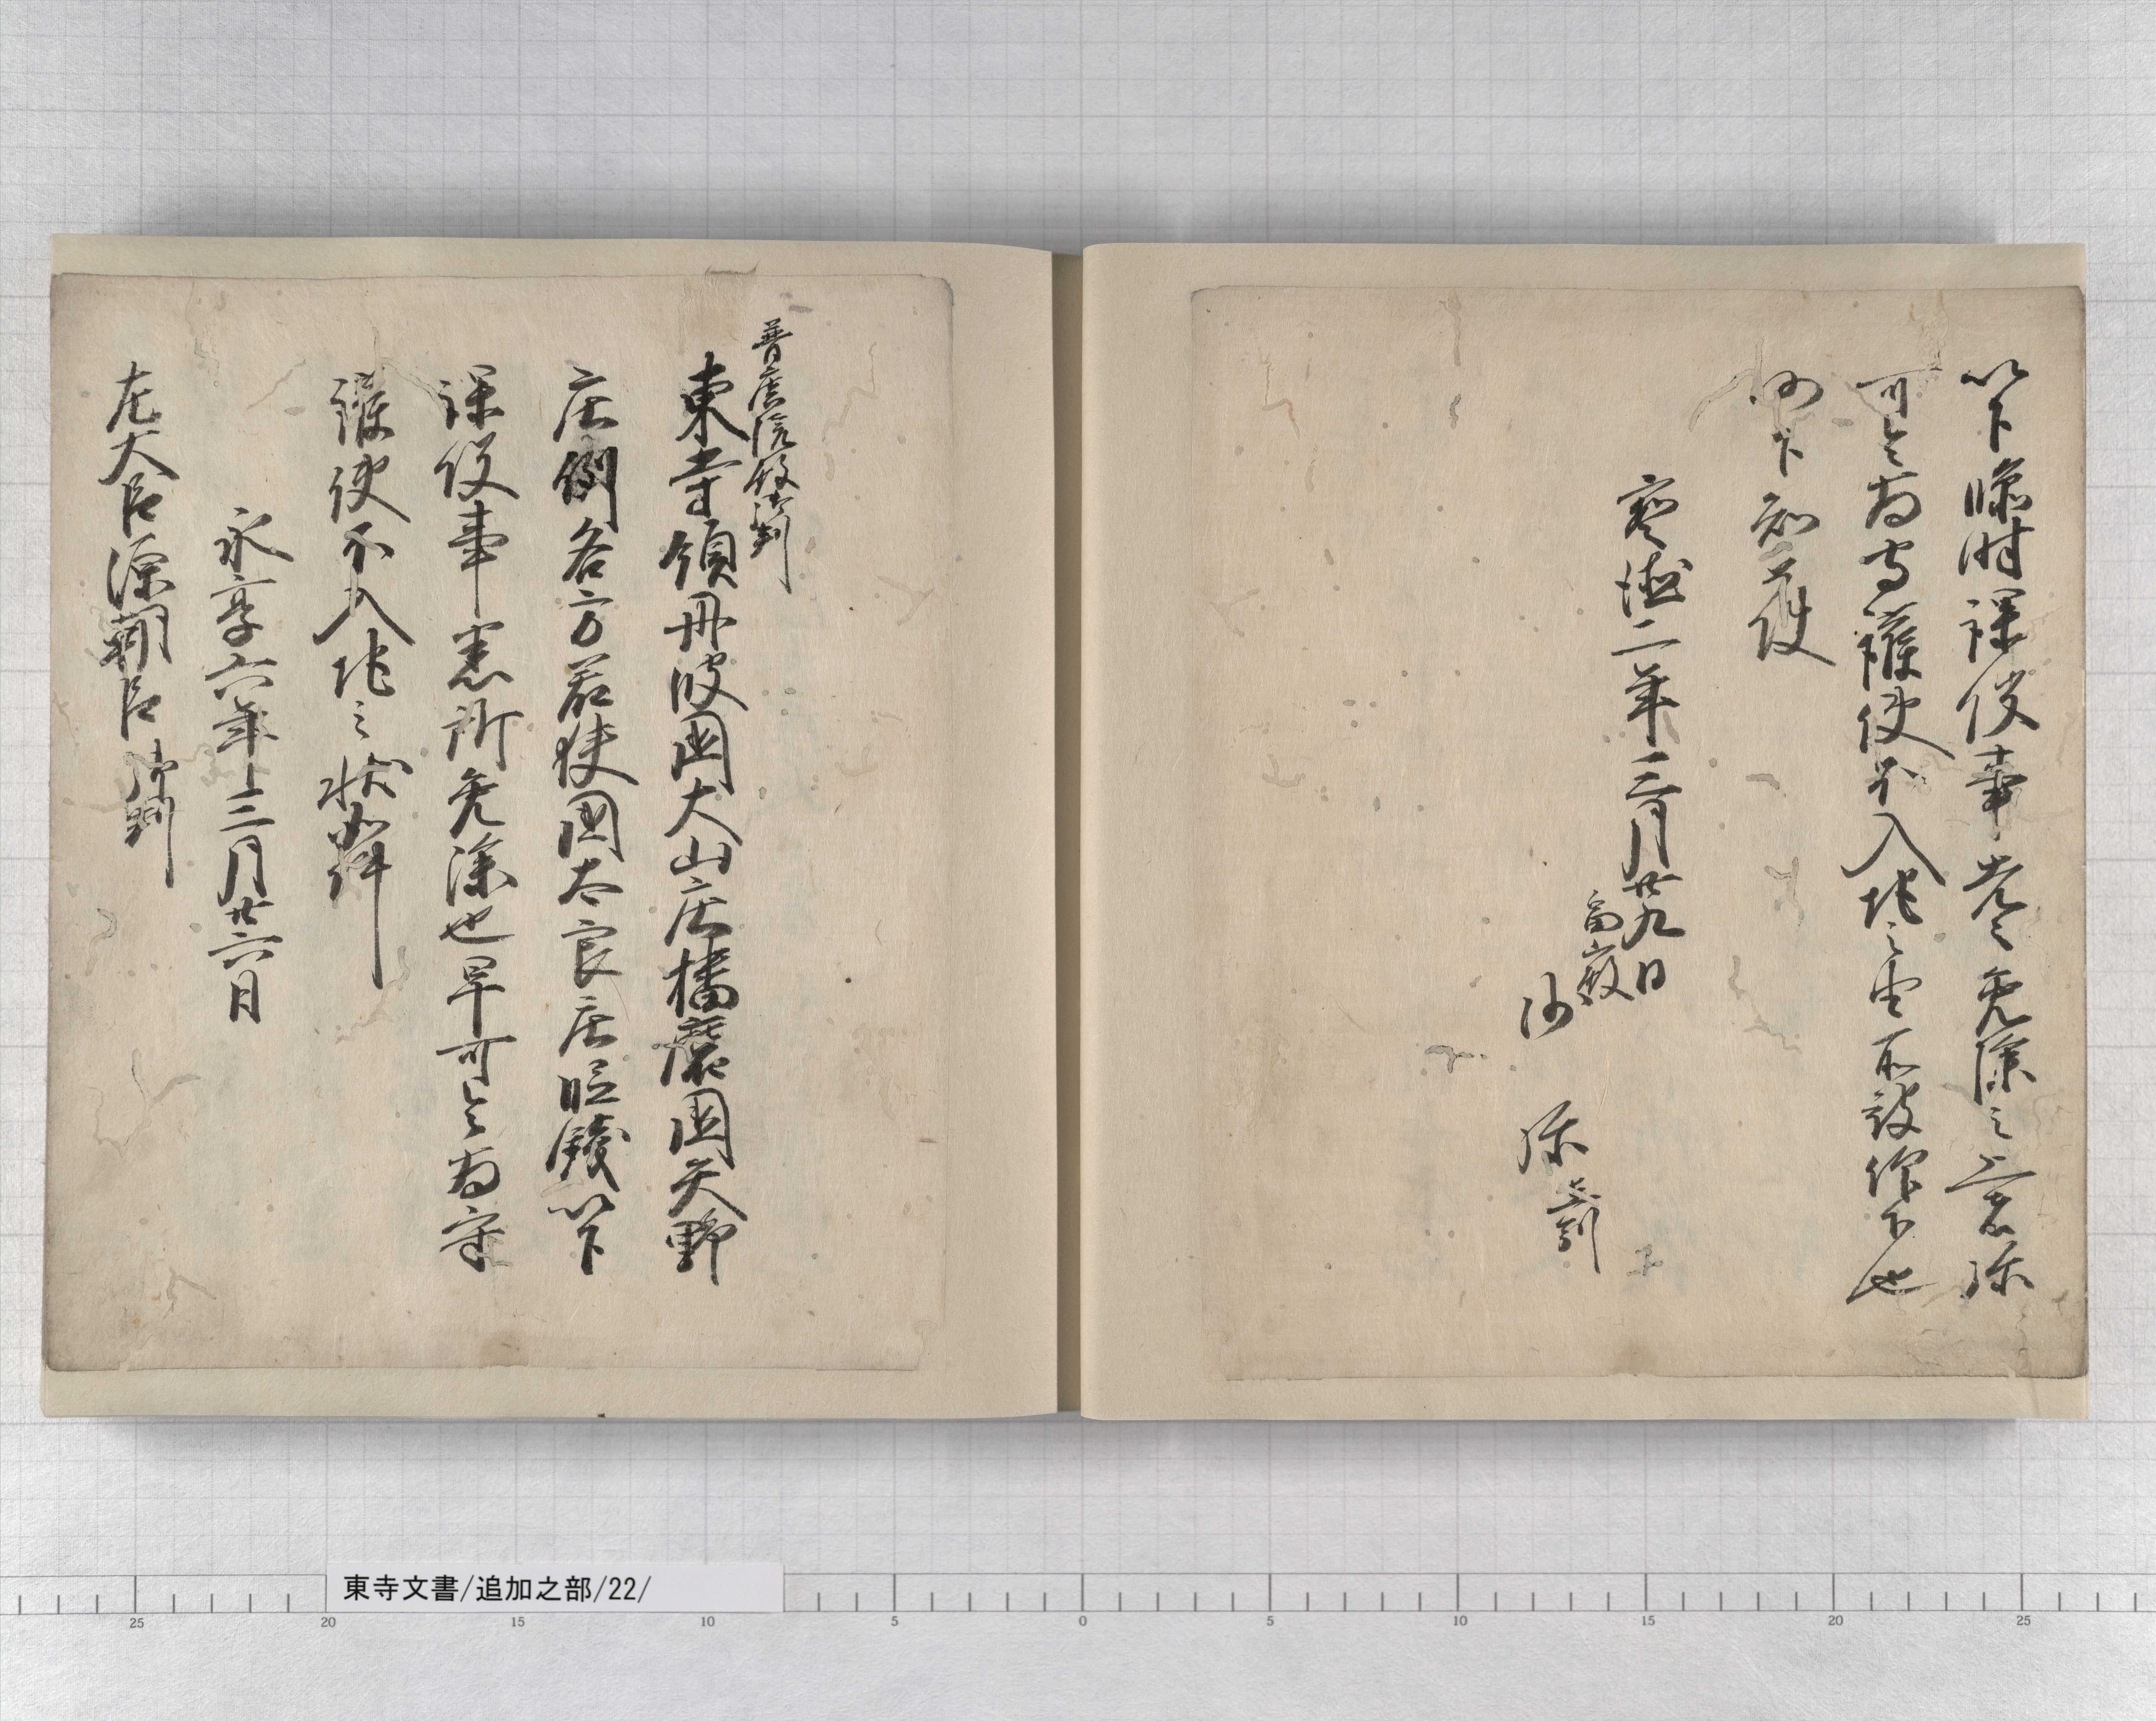 以下臨時課役事先々免除之上者弥
可令為守護使不入地之由所被仰下也
仍下知如件
宝徳二年三月廿九日
畠山殿
沙弥 在判
普広院殿御判
東寺領丹波国大山庄播磨国矢野
庄例名方若狭国太良庄段銭以下
課役事悉所免除也早可令為守
護使不入地之状如件
永享六年十二月廿六日
左大臣源朝臣御判
東寺文書/追加之部/22/
25 20 15 10 5 0 5 10 15 20 25